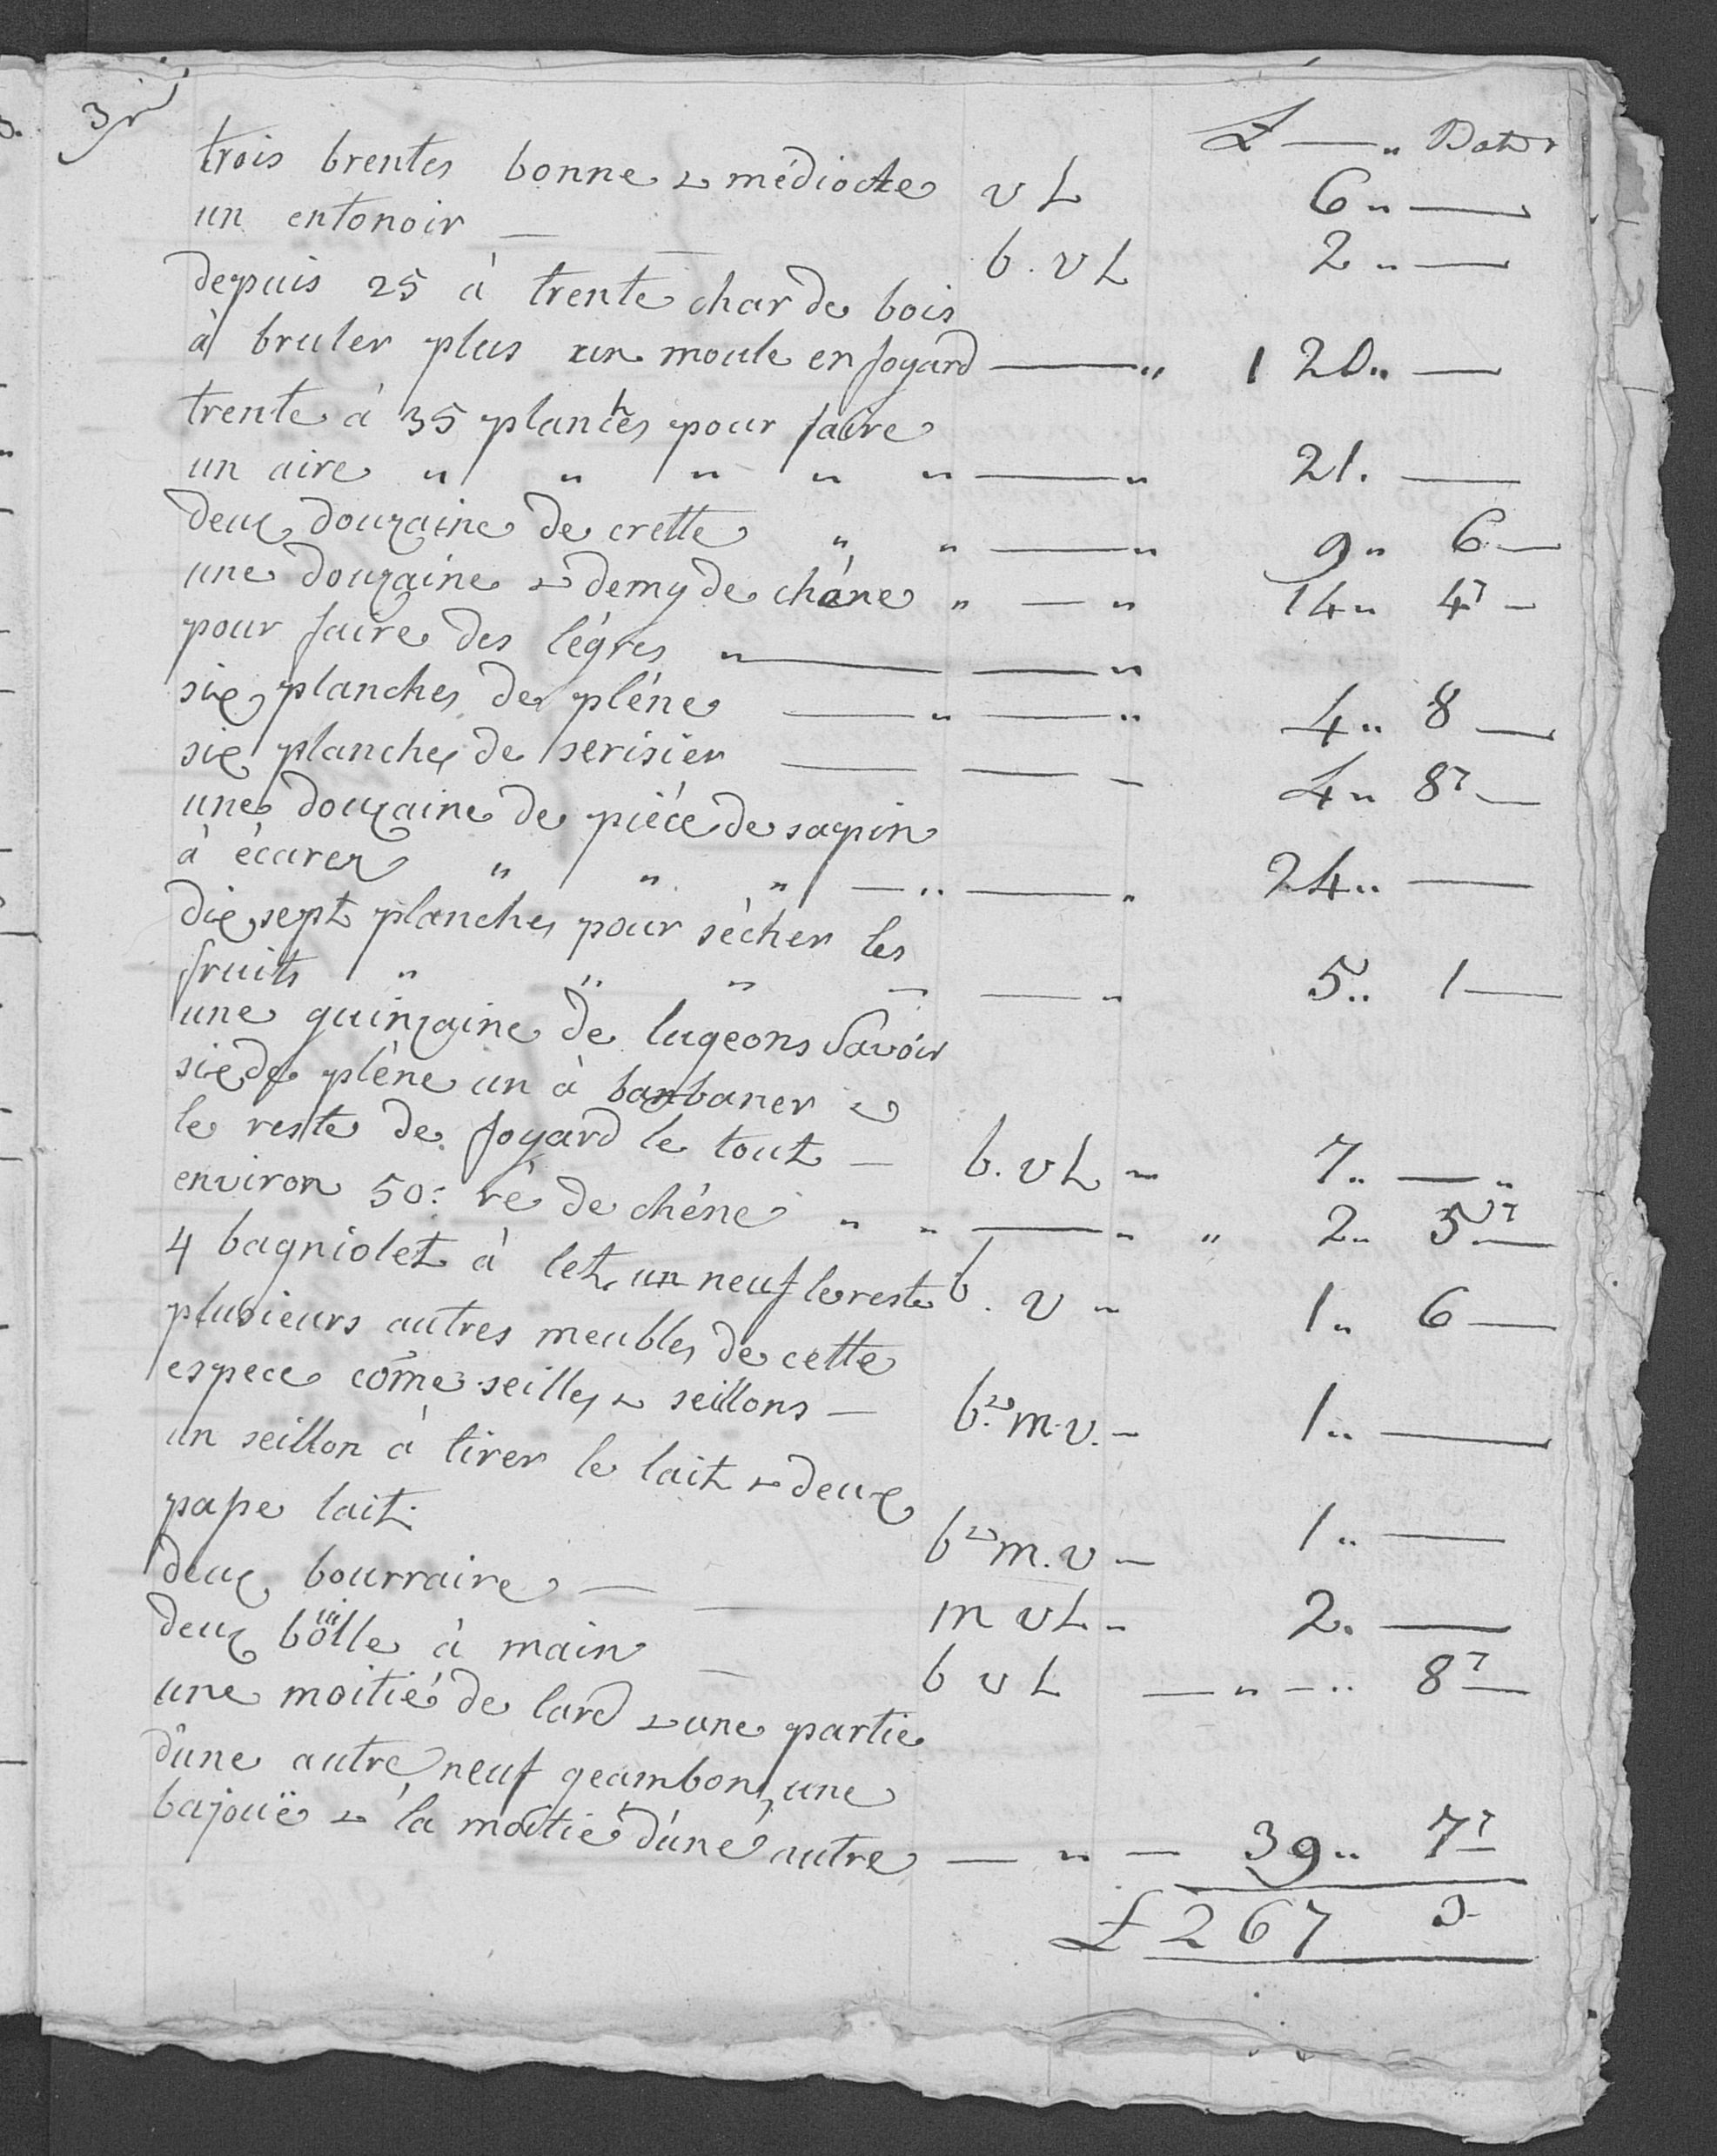 3
£ — „ Batz
trois brentes bonne & médiocre v L 6 „ —
un entonoir — — b. v L 2 „ —
depuis 25 à trente char de bois
à bruler plus un moule en foyard — „ 120 „ —
trente à 35 planches pour faire
un aire „ „ „ „ „ — „ 21. —
deux douzaine de crette „ „ — „ 9 „ 6 —
une douzaine & demy de chêne „ — „ 14 „ 4 —
pour faire des lègres „ — — „
six planches de pléne — „ — „ 4 „ 8 —
six planches de serisier — — - 4 „ 8 —
une douzaine de piéce de sapin
à écarer „ „ „ — „ — „ 24 „ —
dix sept planches pour sécher les
fruits „ „ „ — — „ 5 „ 1 —
une quinzaine de lugeons Savoir
six de pléne un à banbaner &
le reste de foyard le tout — b. v L - 7 „ — „
environ 50: ré de chéne „ „ — „ „ 2 „ 5 —
4 bagniolet à let, un neuf le reste b. v - 1 „ 6 —
plusieurs autres meubles de cette
espece come seilles & seillons — b. & m. v. - 1 „ —
un seillon à tirer le lait & deux
passe lait. b & m. v — 1 „ —
deux bourraire — — m v L - 2. —
deux böille à main — b v L — „ — „ 8 —
une moitié de lard & une partie
dùne autre neuf geambon, une
bajouë & la moitié dùne autre — „ — 39 „ 7 —
£ 267 3